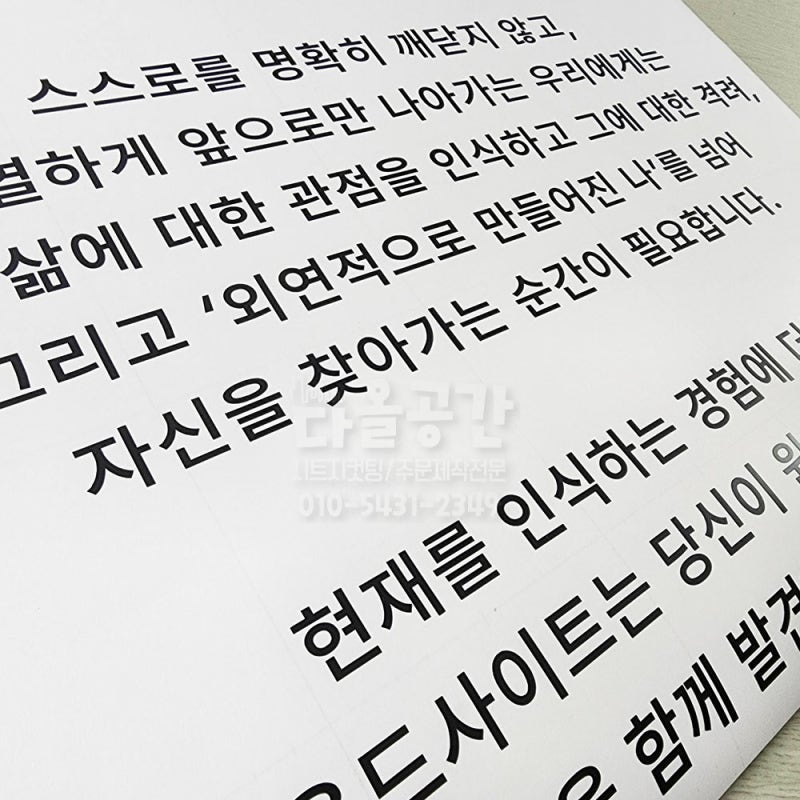 스스로를 명확히 깨닫지 않고,
열하게 앞으로만 나아가는 우리에게는
삶에 대한 관점을 인식하고 그에 대한 격려,
그리고 '외연적으로 만들어진 나'를 넘어
자신을 찾아가는 순간이 필요합니다.
다올공간
시트지컷팅/주문제작전문
010-5431-2349
현재를 인식하는 경험에
당신이
함께